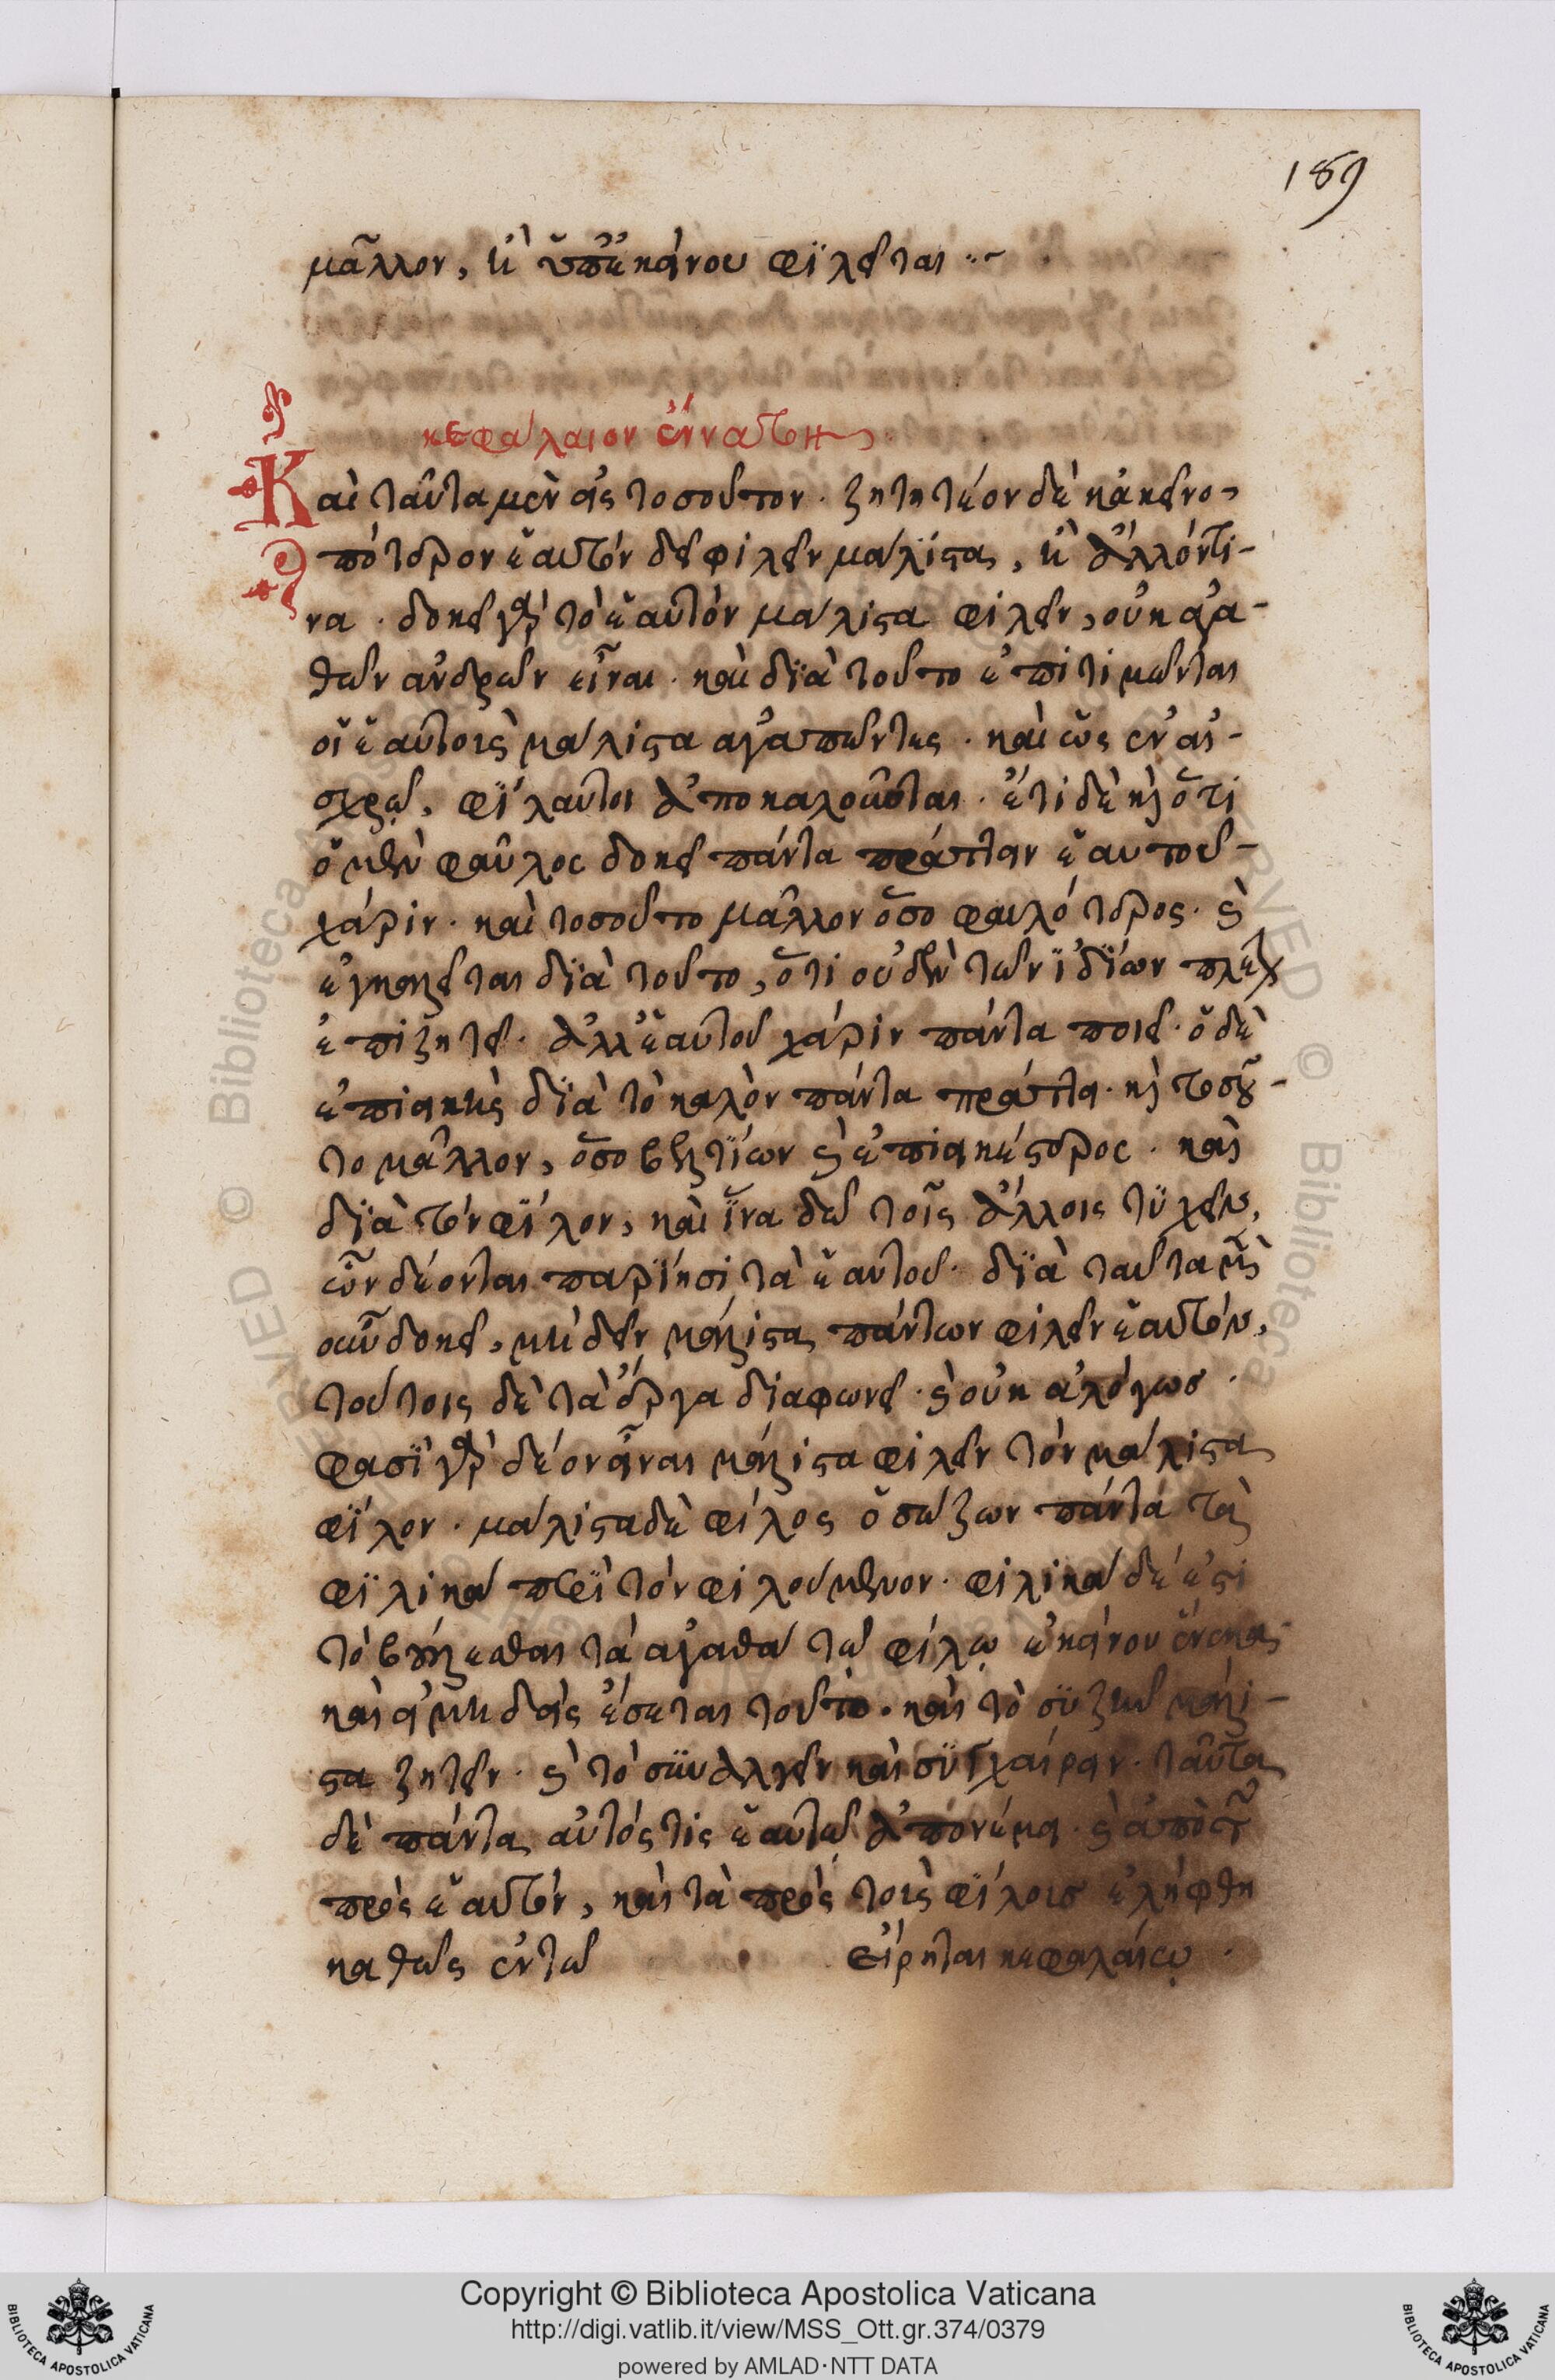 189
μᾶλλον, ἢ ὑπ' ἐκείνου φιλεῖται :~
κεφάλαιον ἔννατον
Καὶ ταῦτα μὲν εἰς τοσοῦτον. ζητητέον δὲ κἀκεῖνο,
πότερον ἑαυτὸν δεῖ φιλεῖν μάλιστα, ἢ ἄλλόν τι-
να. δοκεῖ γὰρ τὸ ἑαυτὸν μάλιστα φιλεῖν, οὐκ ἀγα-
θῶν ἀνδρῶν εἶναι. καὶ διὰ τοῦτο ἐπιτιμῶνται
οἱ ἑαυτοὺς μάλιστα ἀγαπῶντες. καὶ ὡς ἐν αἰ-
σχρῷ, φίλαυτοι ἀποκαλοῦνται. ἔτι δὲ καὶ ὅτι
ὁ μὲν φαῦλος δοκεῖ πάντα πράττειν ἑαυτοῦ
χάριν. καὶ τοσοῦτο μᾶλλον ὅσο φαυλότερος. καὶ
ἐγκαλεῖται διὰ τοῦτο, ὅτι οὐδὲν τῶν ἰδίων πλὴν
ἐπιζητεῖ. ἀλλ' ἑαυτοῦ χάριν πάντα ποιεῖ. ὁ δὲ
ἐπιεικὴς διὰ τὸ καλὸν πάντα πράττει. καὶ τοσοῦ-
το μᾶλλον, ὅσο βελτίων καὶ ἐπιεικέστερος. καὶ
διὰ τὸν φίλον, καὶ ἵνα δῷ τοῖς ἄλλοις τυχεῖν,
ὧν δέονται παρίησι τὰ ἑαυτοῦ. διὰ ταῦτα μὲν
οὖν δοκεῖ, μὴ δεῖν μάλιστα πάντων φιλεῖν ἑαυτόν,
τούτοις δὲ τὰ ἔργα διαφωνεῖ. καὶ οὐκ ἀλόγως.
φασὶ γὰρ δέον εἶναι μάλιστα φιλεῖν τὸν μάλιστα
φίλον. μάλιστα δὲ φίλος ὁ σώζων πάντα τὰ
φιλικὰ περὶ τὸν φιλούμενον. φιλικὰ δέ ἐστι
τὸ βούλεσθαι τὰ ἀγαθὰ τῷ φίλῳ ἐκείνου ἕνεκα,
καὶ εἰ μηδεὶς εἴσεται τοῦτο. καὶ τὸ συζῆν μάλι-
στα ζητεῖν. καὶ τὸ συναλγεῖν καὶ συγχαίρειν. ταῦτα
δὲ πάντα αὐτός τις ἑαυτῷ ἀπονέμει. καὶ ἀπὸ τῶν
πρὸς ἑαυτόν, καὶ τὰ πρὸς τοὺς φίλους ἐλήφθη
καθὼς ἐν τῷ εἴρηται κεφαλαίῳ.
Copyright © Biblioteca Apostolica Vaticana
http://digi.vatlib.it/view/MSS_Ott.gr.374/0379
powered by AMLAD·NTT DATA